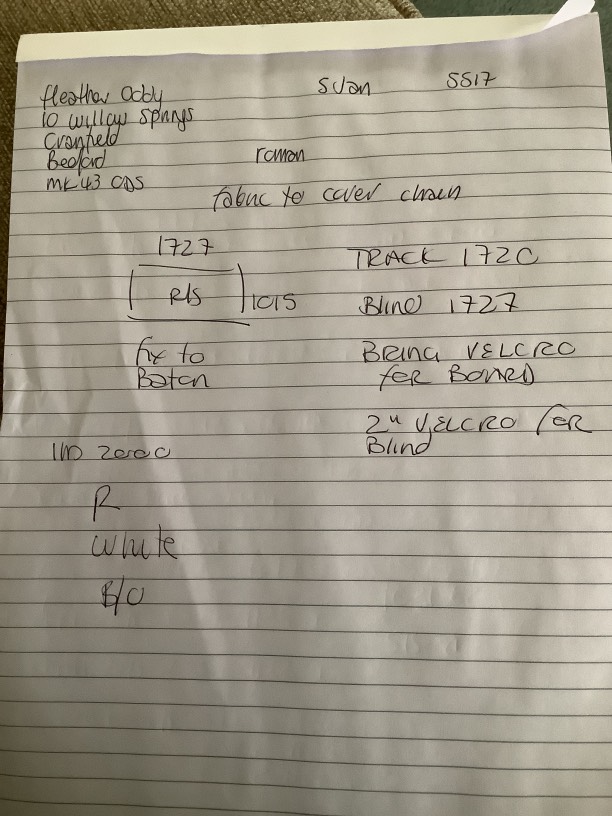 Heather Oddy
10 willow springs
Cranfield
Bedford
MK43 0DS
SS17
roman
fabric to cover chain
1727
R/S
1015
fix to
Baton
TRACK 1720
Blind 1727
BRING VELCRO
for BOARD
2" VELCRO for
Blind
2000
R
White
B/O